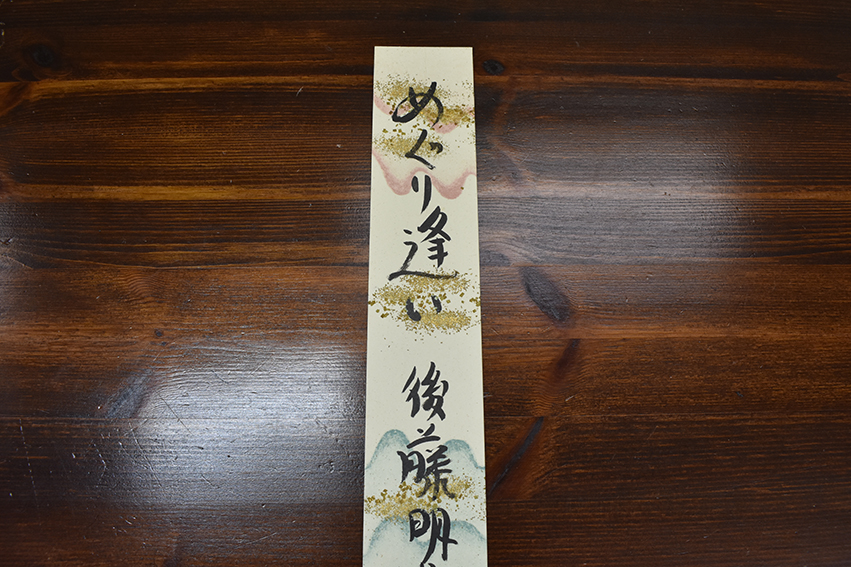 めぐり逢い 後藤明